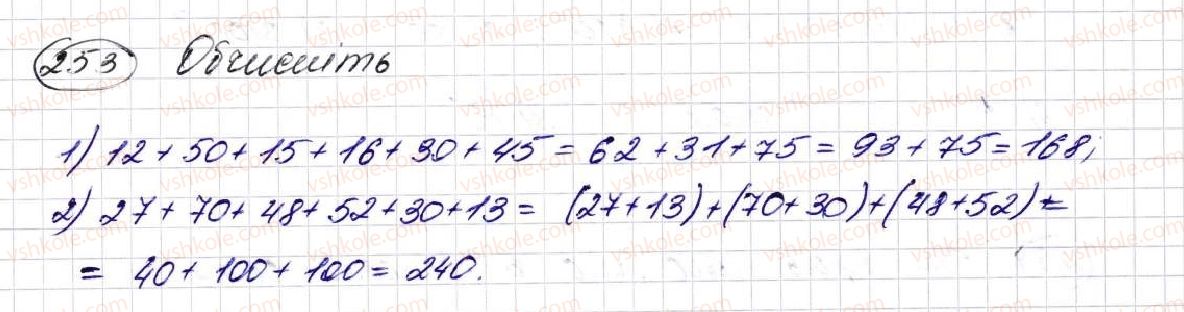 253 Обчисліть
1) 12 + 50 + 15 + 16 + 30 + 45 = 62 + 31 + 75 = 93 + 75 = 168;
2) 27 + 70 + 48 + 52 + 30 + 13 = (27 + 13) + (70 + 30) + (48 + 52) =
= 40 + 100 + 100 = 240.